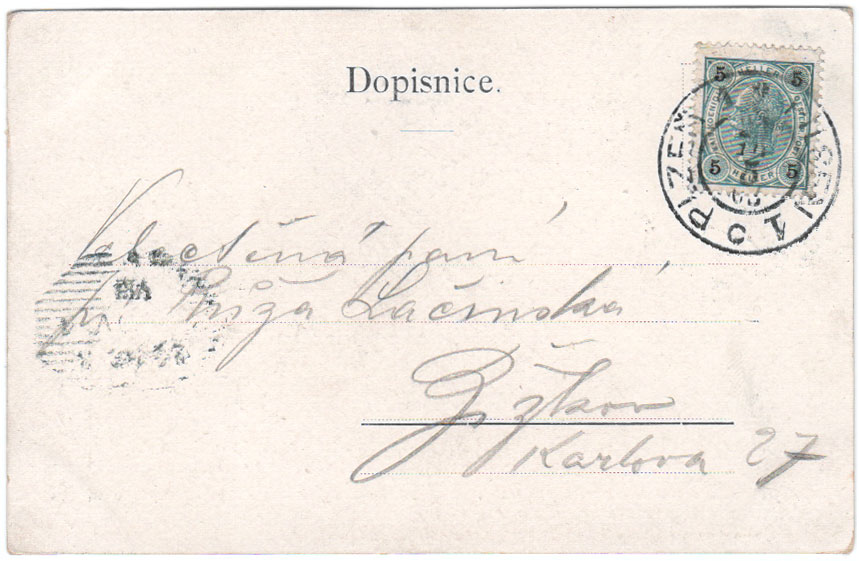 Dopisnice.
5 HELLER 5
5 HELLER 5
PLZEŇ 1
Velectěná paní
pí. Růža Lačinská
Žižkov
Karlova 27